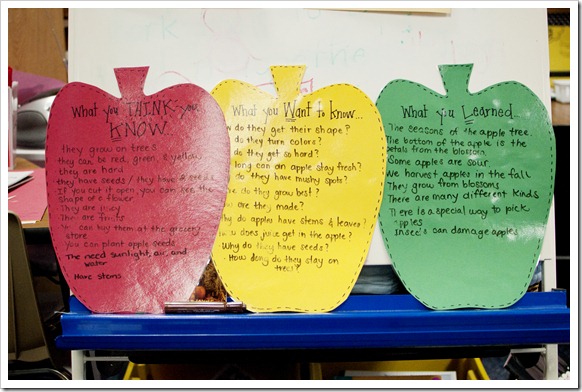 What you THINK you
KNOW
they grow on trees
they can be red, green, & yellow
they are hard
they have seeds / they have 6 seeds
If you cut it open, you can see the
shape of a flower
They are juicy
are fruits
can buy them at the grocery
store
you can plant apple seeds
The need sunlight, air, and
water
Have stems.
What you Want to know...
do they get their shape?
do they turn colors?
do they get so hard?
long can an apple stay fresh?
do they have mushy spots?
do they grow best?
are they made?
do apples have stems & leaves?
does juice get in the apple?
Why do they have seeds?
How long do they stay on
trees?
What you Learned...
The seasons of the apple tree.
The bottom of the apple is the
petals from the blossom.
Some apples are sour.
We harvest apples in the fall
They grow from blossoms
There are many different kinds
There is a special way to pick
apples
Insects can damage apples